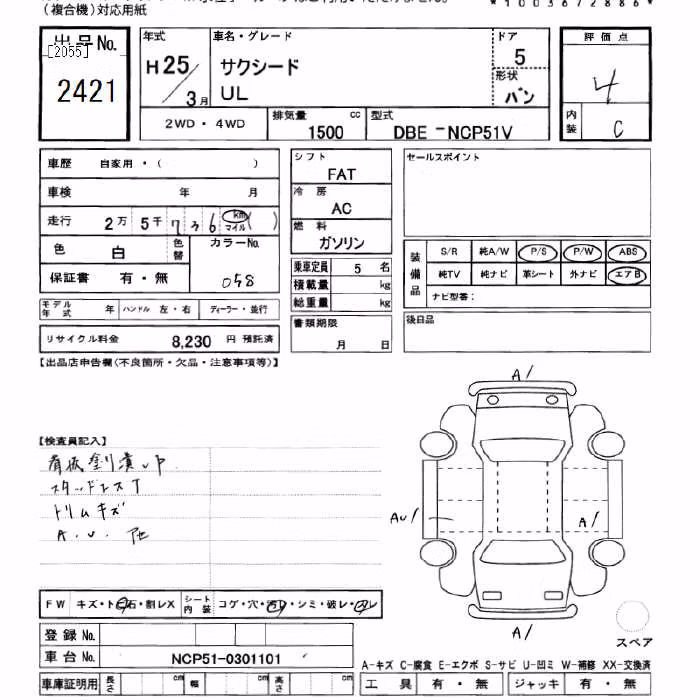 (複合機)対応用紙
*1003672886*
出品No.
[2055]
2421
年式
H25/3月
車名・グレード
サクシード
UL
ドア
5
形状
バン
評価点
4
内装
C
2WD・4WD
排気量
1500
cc
型式
DBE-NCP51V
車歴 自家用・( )
車検 年 月
走行 2万 5千 7 3 6 km マイル ( )
色 白 色替 カラーNo.
058
保証書 有・無
モデル年式 年 ハンドル 左・右 ディーラー・並行
リサイクル料金 8,230 円 預託済
シフト
FAT
冷房
AC
燃料
ガソリン
乗車定員 5 名
積載量 kg
総重量 kg
書類期限
月 日
セールスポイント
装備品
S/R 純A/W P/S P/W ABS
純TV 純ナビ 革シート 外ナビ エアB
ナビ型番:
後日品
【出品店申告欄(不良箇所・欠品・注意事項等)】
A/
【検査員記入】
スタッドレスT
トリムキズ
A.U. 他
AU/
A/
A/
FW キズ・ト石・割レX シート内装 コゲ・穴・汚レ・シミ・破レ・スレ
登録No.
車台No. NCP51-0301101
車庫証明用 長さ cm 幅 cm 高さ cm
スペア
A-キズ C-腐食 E-エクボ S-サビ U-凹ミ W-補修 XX-交換済
工具 有・無 ジャッキ 有・無